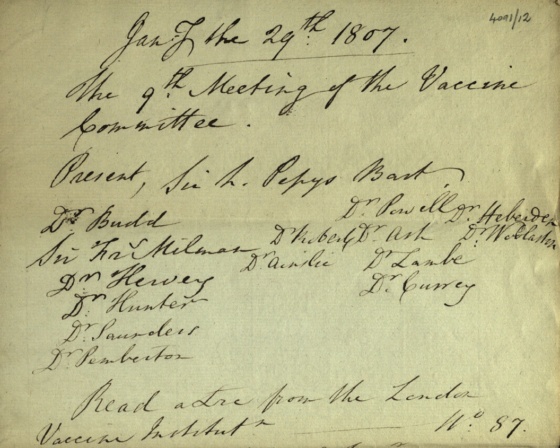 4091/12
Jany the 29th. 1807.
the 9th. Meeting of the Vaccine
Committee.
Present, Sir L. Pepys Bart.
Dr. Powell Dr. Heberden
Dr. Budd
Dr Roberts Dr. Ash Dr. Wollaston
Sir Frs Milman
Dr Ainslie Dr Lambe
Dr. Hervey
Dr. Currey
Dr. Hunter
Dr. Saunders
Dr. Pemberton
Read a Lre from the London
Vaccine Institutn No. 87.